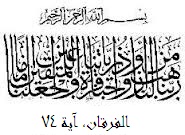 بسم الله الرحمن الرحيم
ربنا هب لنا من أزواجنا وذرياتنا قرة أعين واجعلنا للمتقين إماما
الفرقان، آية ٧٤